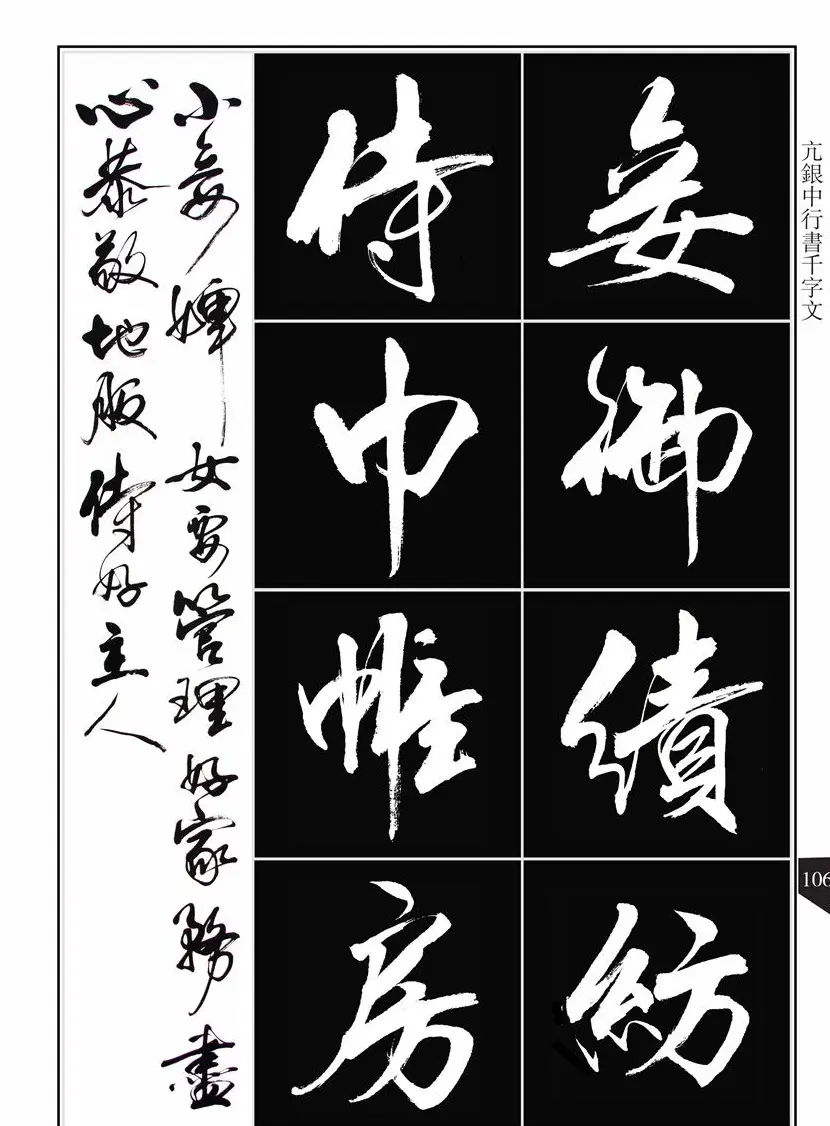 亢銀中行書千字文
妾御績紡
侍巾帷房
小妾婢女要管理好家務盡
心恭敬地服侍好主人
106